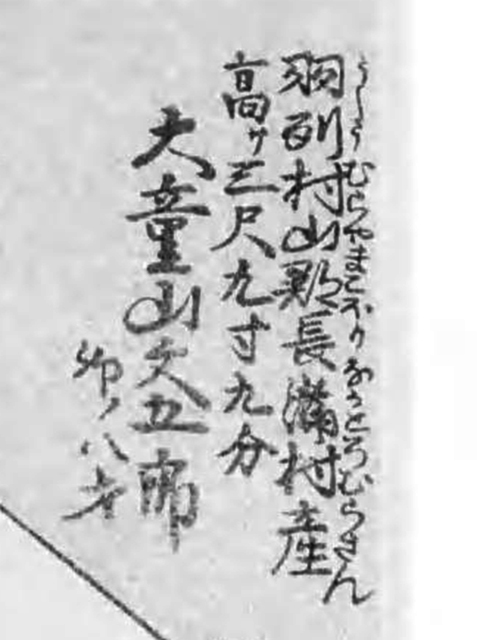 うしうむらやまこほりながとろむらさん
羽州村山郡長瀞村産
高サ三尺九寸九分
大童山文五郎
卯ノ八才